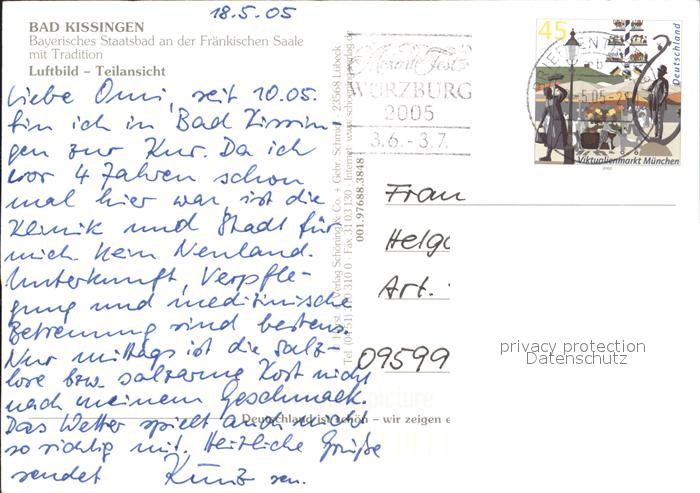 18.5.05
BAD KISSINGEN
Bayerisches Staatsbad an der Fränkischen Saale
mit Tradition
Luftbild – Teilansicht
Liebe Omi, seit 10.05.
bin ich in Bad Kissin
gen zur Kur. Da ich
vor 4 Jahren schon
mal hier war, ist die
Klinik und Stadt für
mich kein Neuland.
Unterkunft, Verpfle-
gung und medizinische
Betreuung sind bestens.
Nur mittags ist die salz-
lose bzw. salzarme Kost nicht
nach meinem Geschmack.
Das Wetter spielt auch nicht
so richtig mit. Herzliche Grüße
sendet Kunz sen.
Deutschland ist schön – wir zeigen e
Verlag Schöning & Co. + Gebr. Schmidt, 23568 Lübeck
001.97688.3848
Mozart Fest
WÜRZBURG
2005
3.6.-3.7.
45
Deutschland
Viktualienmarkt München
Frau
Helg
Art.
09599
privacy protection
Datenschutz